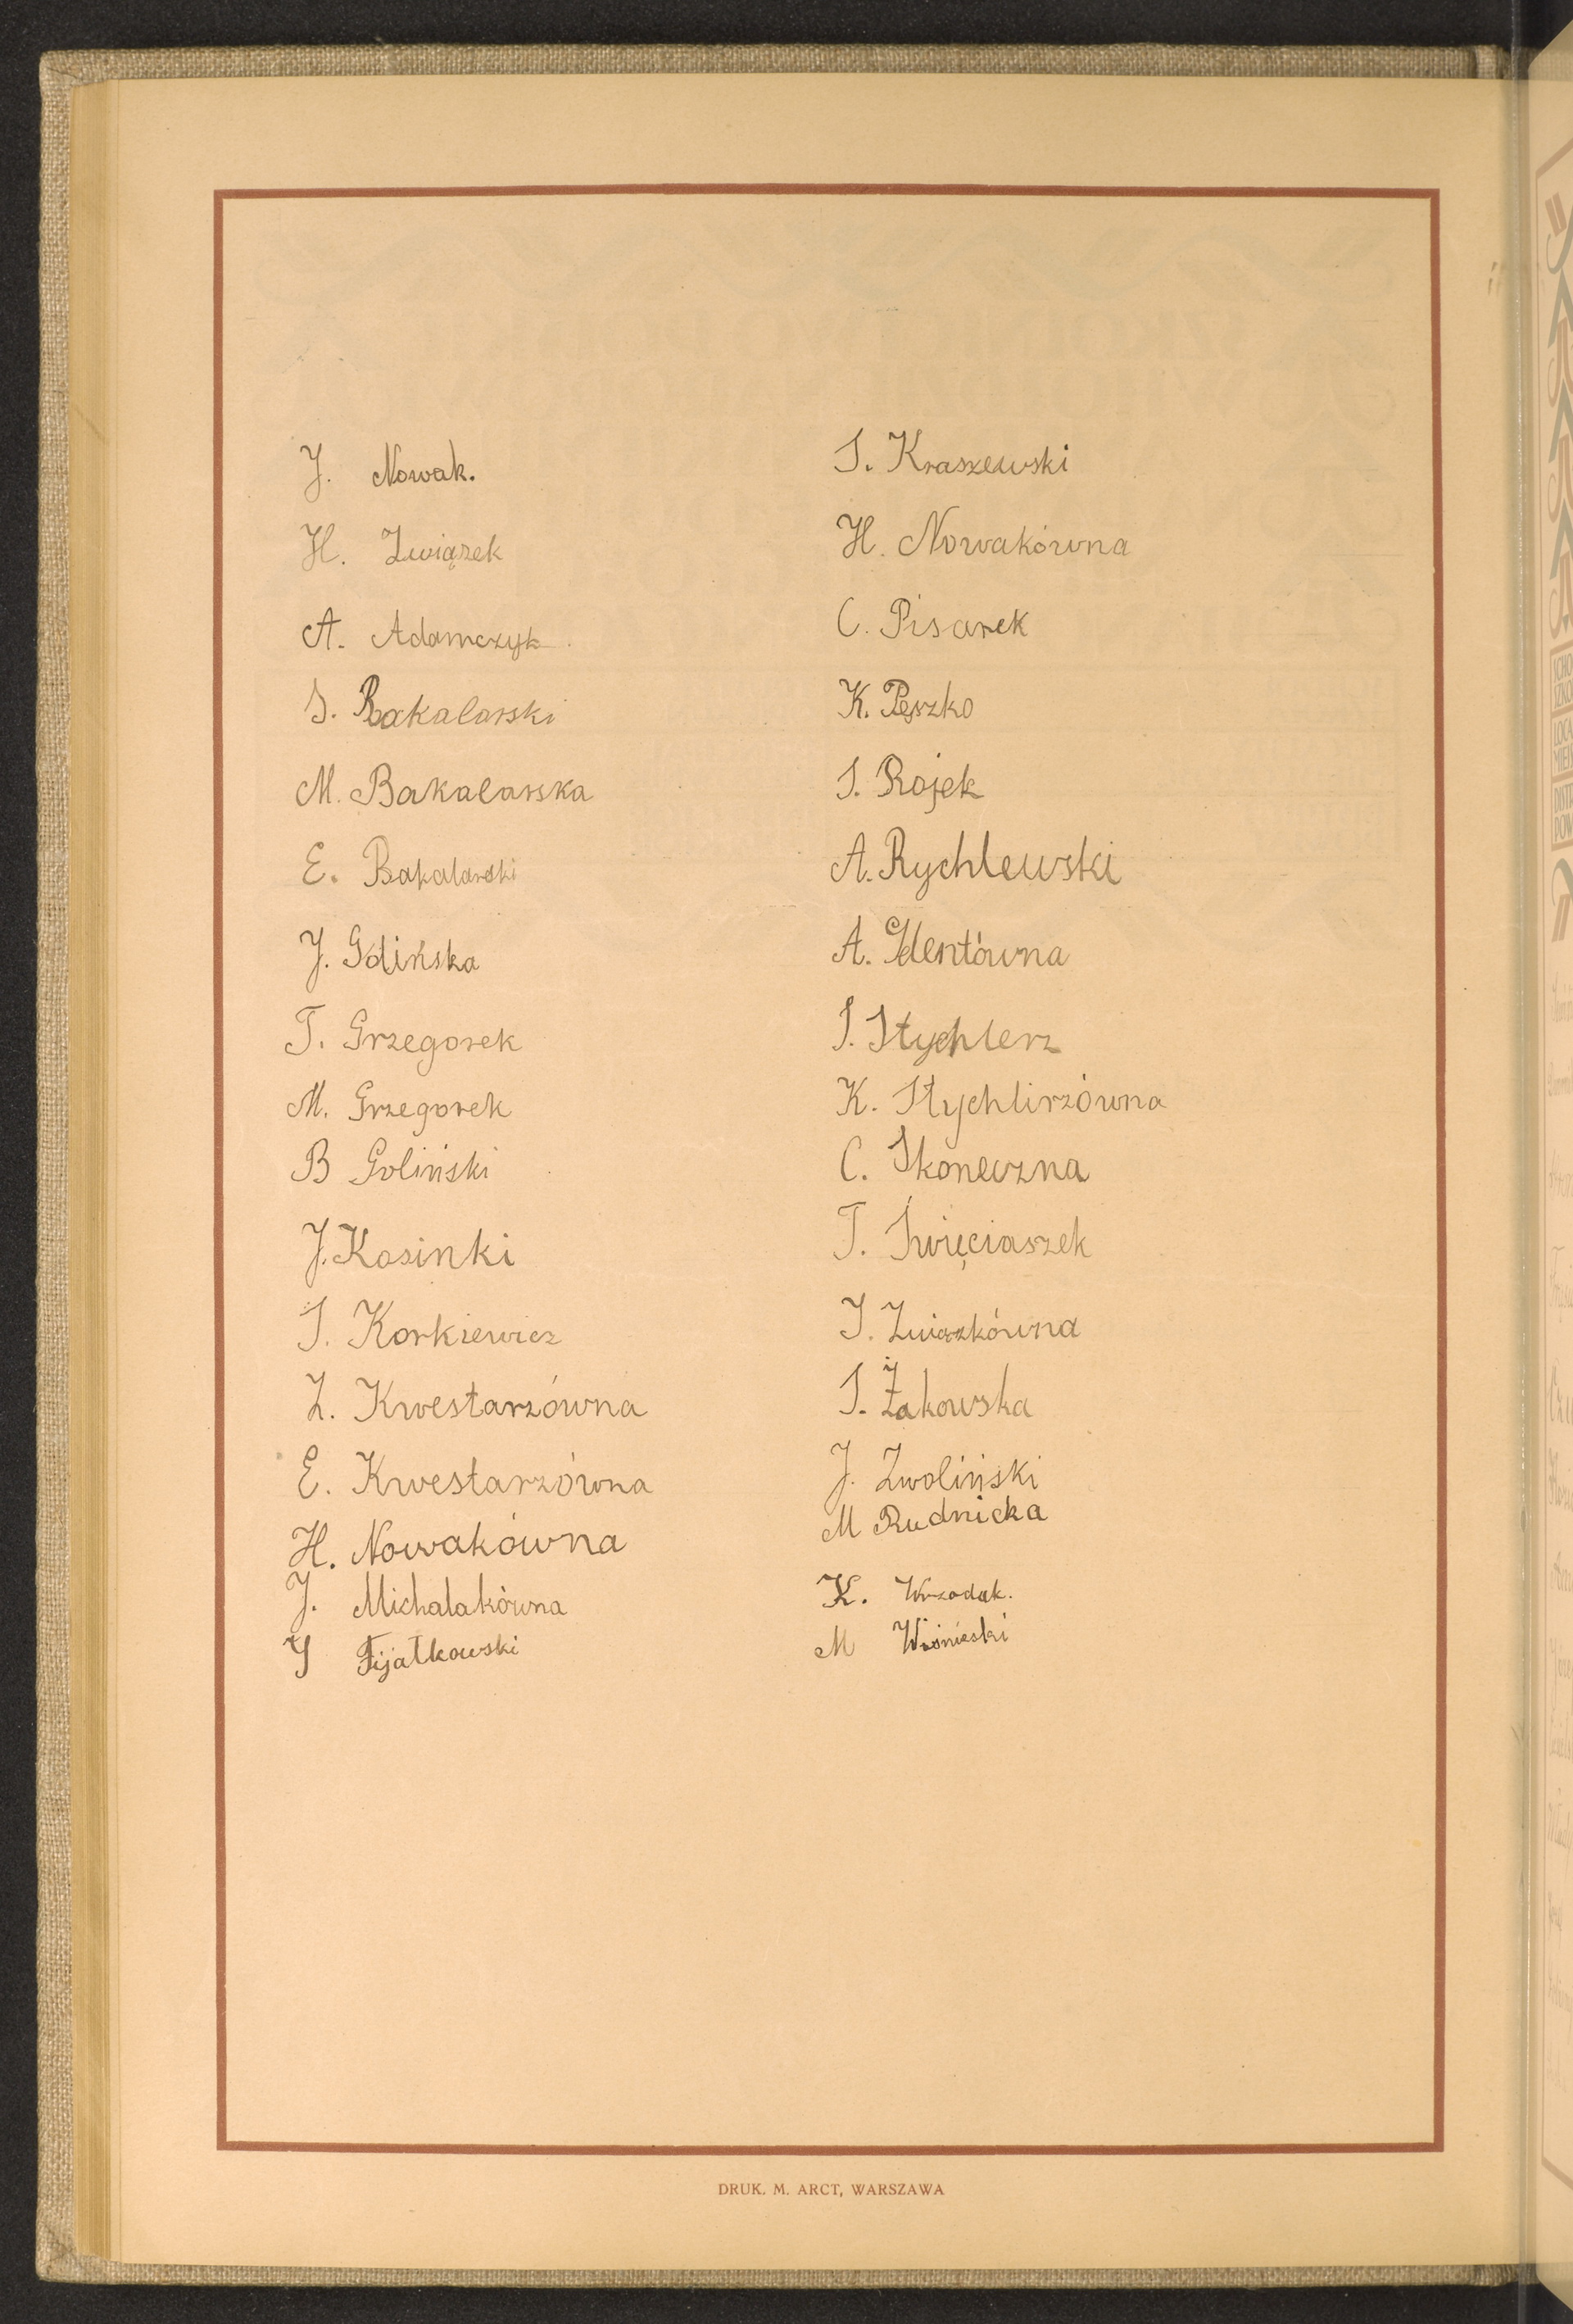 J. Nowak.
H. Związek
A. Adamczyk
S. Bakalarski
M. Bakalarska
E. Bakalarski
J. Gdińska
T. Grzegorek
M. Grzegorek
B Goliński
J. Kosinki
S. Korkiewicz
Z. Kwestarzówna
E. Kwestarzówna
H. Nowakówna
J. Michalakówna
J Fijałkowski
S. Kraszewski
H. Nowakówna
C. Pisarek
K. Pęszko
S. Rojek
A. Rychlewski
A.
S. Stychlerz
K. Stychlirzówna
C. Skoneczna
T. Święciaszek
J. Zwiazkówna
S. Żakowska
J. Zwoliński
M Rudnicka
K. Wrzodak.
M Wiśnieski
DRUK. M. ARCT, WARSZAWA